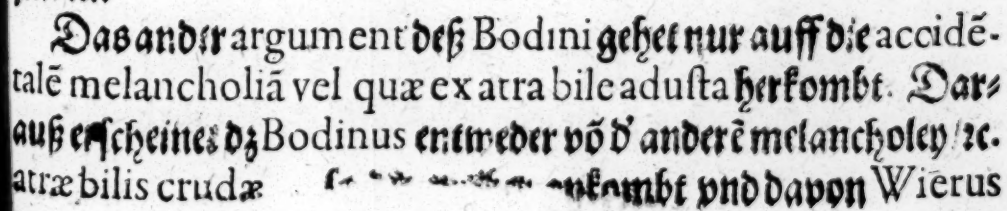 Das ander argument deß Bodini gehet nur auff die accidẽ-
talẽ melancholiã vel quæ ex atra bile adusta herkombt. Dar-
auß erscheinet dz Bodinus entweder võ d' anderẽ melancholey / ꝛc.
atræ bilis crudæ vnd davon Wierus